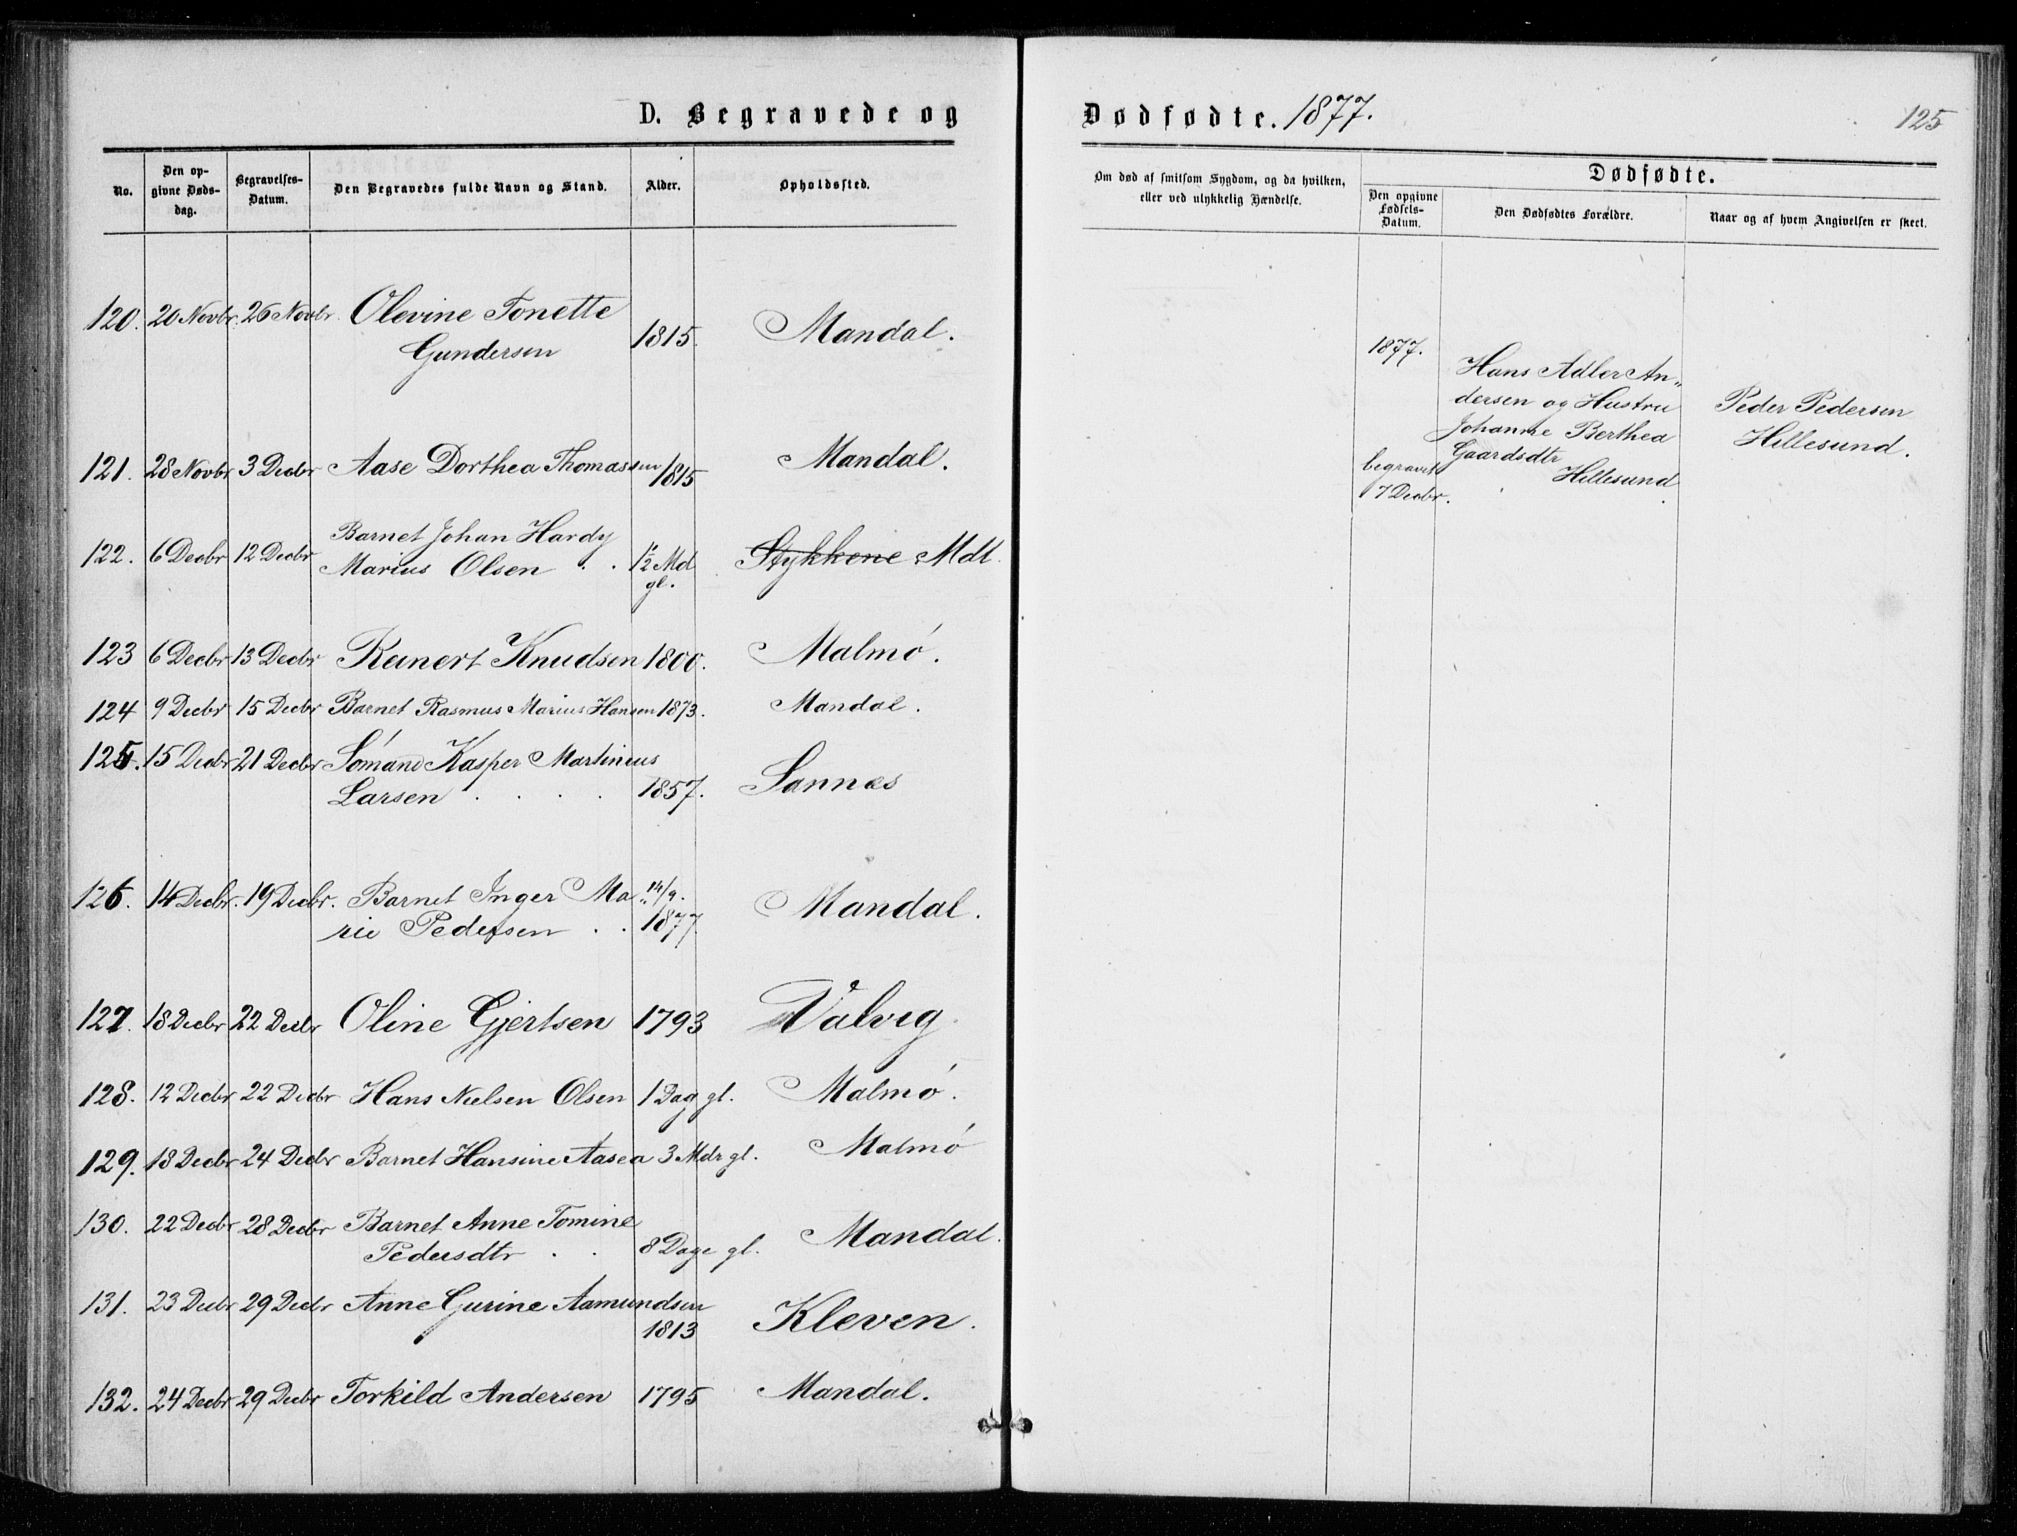 D. Begravede og
No.
Den op-
givne Døds-
dag.
Begravelses-
Datum.
Den Begravedes fulde Navn og Stand.
Alder.
Opholdssted.
120. 20 Novbr. 26 Novbr. Olevine Tonette
Gundersen 1815. Mandal.
121. 28 Novbr 3 Decbr Aase Dorthea Thomassen 1815 Mandal.
122. 6 Decbr 12 Decbr Barnet Johan Hardy
Marius Olsen . . 1½ Md
gl. Stykkene Mdl.
123 6 Decbr 13 Decbr Reinert Knudsen 1800. Malmø.
124 9 Decbr 15 Decbr Barnet Rasmus Marius Hansen 1873. Mandal.
125. 15 Decbr 21 Decbr Sømand Kasper Martinius
Larsen . . . . 1857. Sannes
126. 14 Decbr. 19 Decbr. Barnet Inger Ma 14/9.
rie Pedersen . . 1877 Mandal.
127. 18 Decbr 22 Decbr Oline Gjertsen 1793 Valvig.
128. 12 Decbr 22 Decbr Hans Nielsen Olsen 1 Dag gl. Malmø.
129. 18 Decbr 24 Decbr Barnet Hansine Aasea 3 Mdr gl. Malmø
130. 22 Decbr 28 Decbr Barnet Anne Tomine
Pedersdtr . . 8 Dage gl. Mandal.
131. 23 Decbr 29 Decbr Anne Gurine Aamundsen
1813 Kleven.
132. 24 Decbr 29 Decbr Torkild Andersen 1795 Mandal.
Dødfødte. 1877.
125
Om død af smitsom Sygdom, og da hvilken,
eller ved ulykkelig Hændelse.
Dødfødte.
Den opgivne
Fødsels-
Datum.
Den Dødfødtes Forældre.
Naar og af hvem Angivelsen er skeet.
1877.
begravet
7 Decbr.
Hans Adler An„
dersen og Hustru
Johanne Berthea
Gaardsdtr
Hillesund
Peder Pedersen
Hillesund.